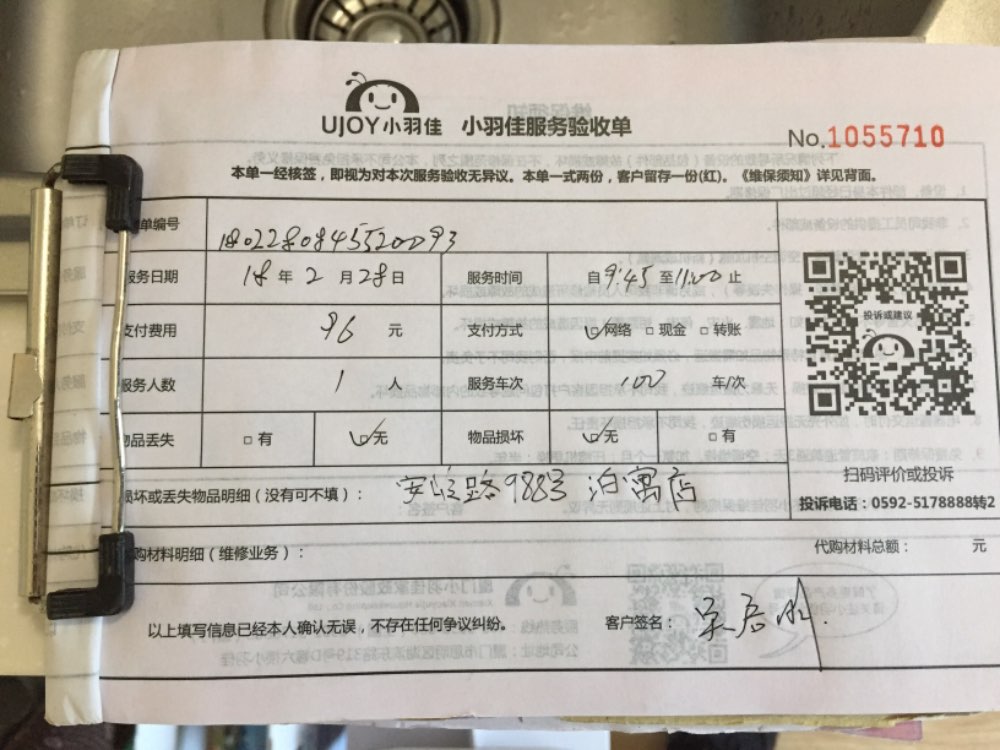 UJOY小羽佳 小羽佳服务验收单
No.1055710
本单一经核签，即视为对本次服务验收无异议。本单一式两份，客户留存一份(红)。《维保须知》详见背面。
单编号 1802280845520093
服务日期 18年2月28日 服务时间 自9:45至11:00止
投诉或建议
支付费用 96元 支付方式 网络 现金 转账
服务人数 1人 服务车次 车/次
物品丢失 有 无 物品损坏 无 有
扫码评价或投诉
损坏或丢失物品明细（没有可不填）： 路988号 泊寓店
投诉电话：0592-5178888转2
购材料明细（维修业务）： 代购材料总额： 元
以上填写信息已经本人确认无误，不存在任何争议纠纷。 客户签名：